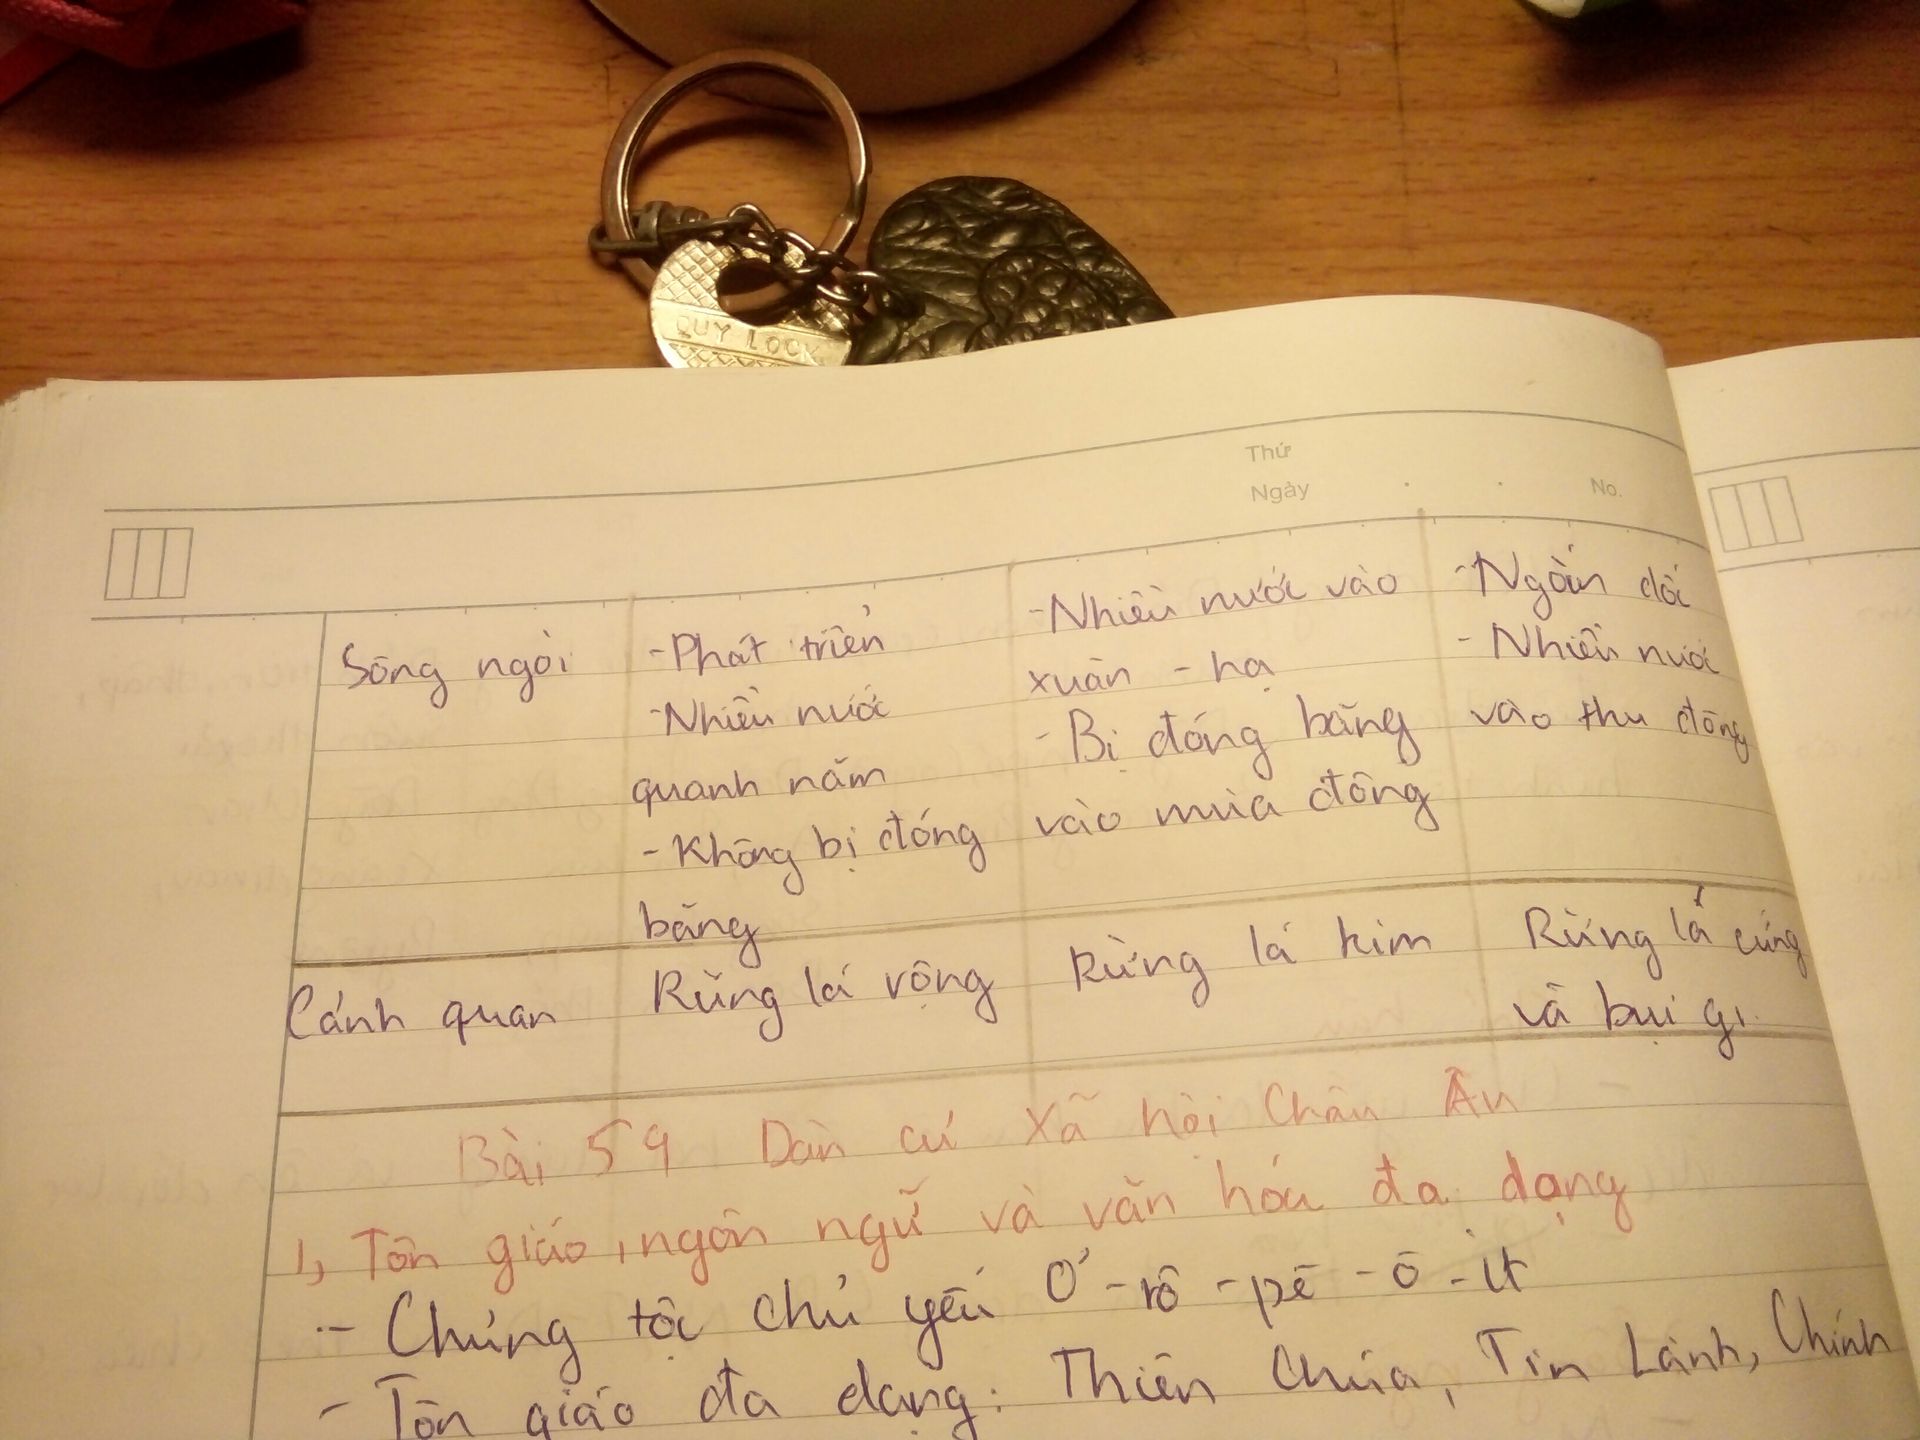 QUY LOCK
Thứ
Ngày
No.
Sông ngòi
-Phát triển
-Nhiều nước
quanh năm
-Không bị đóng
băng
-Nhiều nước vào
xuân - hạ
-Bị đóng băng
vào mùa đông
-Ngắn dốc
-Nhiều nước
vào thu đông
Cảnh quan
Rừng lá rộng
Rừng lá kim
Rừng lá cứng
và bụi gi
Bài 59 Dân cư xã hội Châu Âu
1, Tôn giáo, ngôn ngữ và văn hóa đa dạng
- Chủng tộc chủ yếu Ơ-rô-pê-ô-ít
- Tôn giáo đa dạng: Thiên Chúa, Tin Lành, Chính